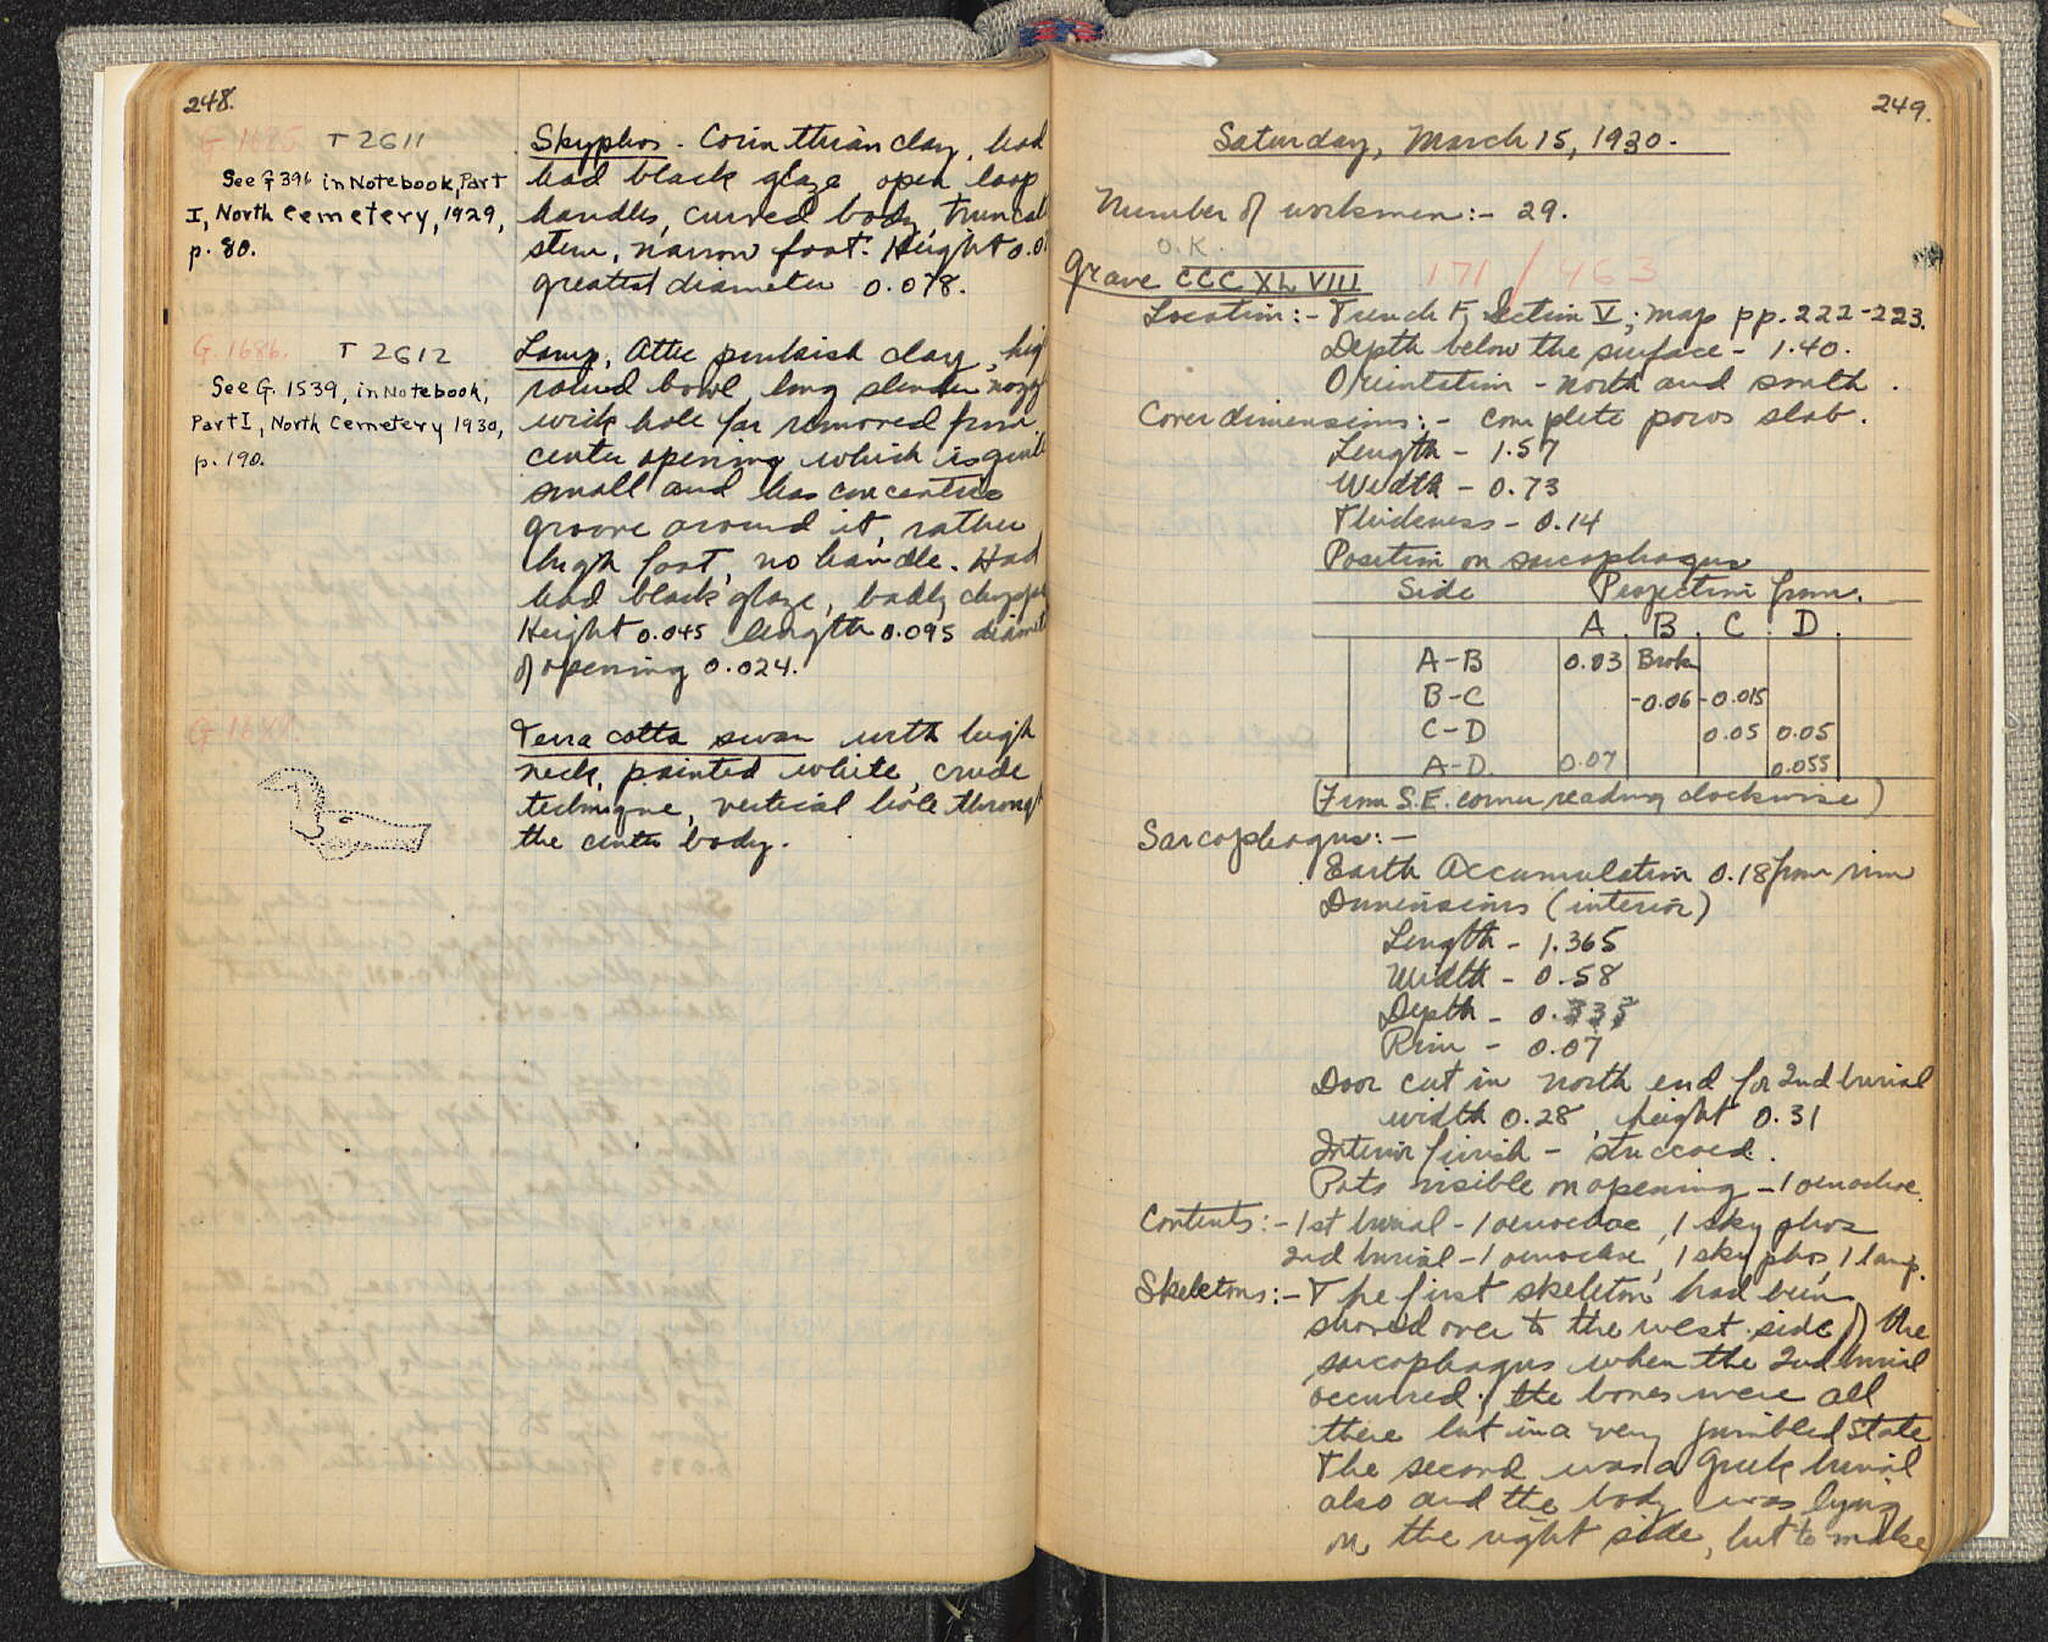 248.
G 1685. T 2611
See G 396 in Notebook, Part
I, North Cemetery, 1929,
p. 80.
Skyphos - Corinthian clay, had
bad black glaze, open loop
handles, curved body,
stem, narrow foot. Height
greatest diameter 0.078.
G. 1686. T 2612
See G. 1539, in Notebook,
Part I, North Cemetery 1930,
p. 190.
Lamp, Attic pinkish clay,
round bowl, long slender
wick hole far removed from
center opening which is quite
small and has concentric
groove around it, rather
high foot, no handle. Had
bad black glaze, badly
Height 0.045 length 0.095
of opening 0.024.
Terra cotta swan with high
neck, painted white, crude
technique, vertical hole through
the center body.
249.
Saturday, March 15, 1930.
Number of workmen:- 29.
O.K.
Grave CCCXLVIII 171 / 463
Location:- Trench F, Section V; map pp. 222-223.
Depth below the surface - 1.40.
Orientation - north and south.
Cover dimensions:- complete poros slab.
Length - 1.57
Width - 0.73
Thickness - 0.14
Position on sarcophagus
Side Projection from.
A. B. C. D.
A-B 0.03 Brok
B-C -0.06 -0.015
C-D 0.05 0.05
A-D. 0.07 0.055
(From S.E. corner reading clockwise)
Sarcophagus:-
Earth Accumulation 0.18 from rim
Dimensions (interior)
Length - 1.365
Width - 0.58
Depth - 0.335
Rim - 0.07
Door cut in north end for 2nd burial
width 0.28, height 0.31
Interior finish - stuccoed.
Pots visible on opening - 1 oenochoe.
Contents:- 1st burial - 1 oenochoe, 1 skyphos
2nd burial - 1 oenochoe, 1 skyphos, 1 lamp.
Skeletons:- The first skeleton had been
shoved over to the west side of the
sarcophagus when the 2nd burial
occurred; the bones were all
there but in a very jumbled state
The second was a Greek burial
also and the body was lying
on the right side, but to make